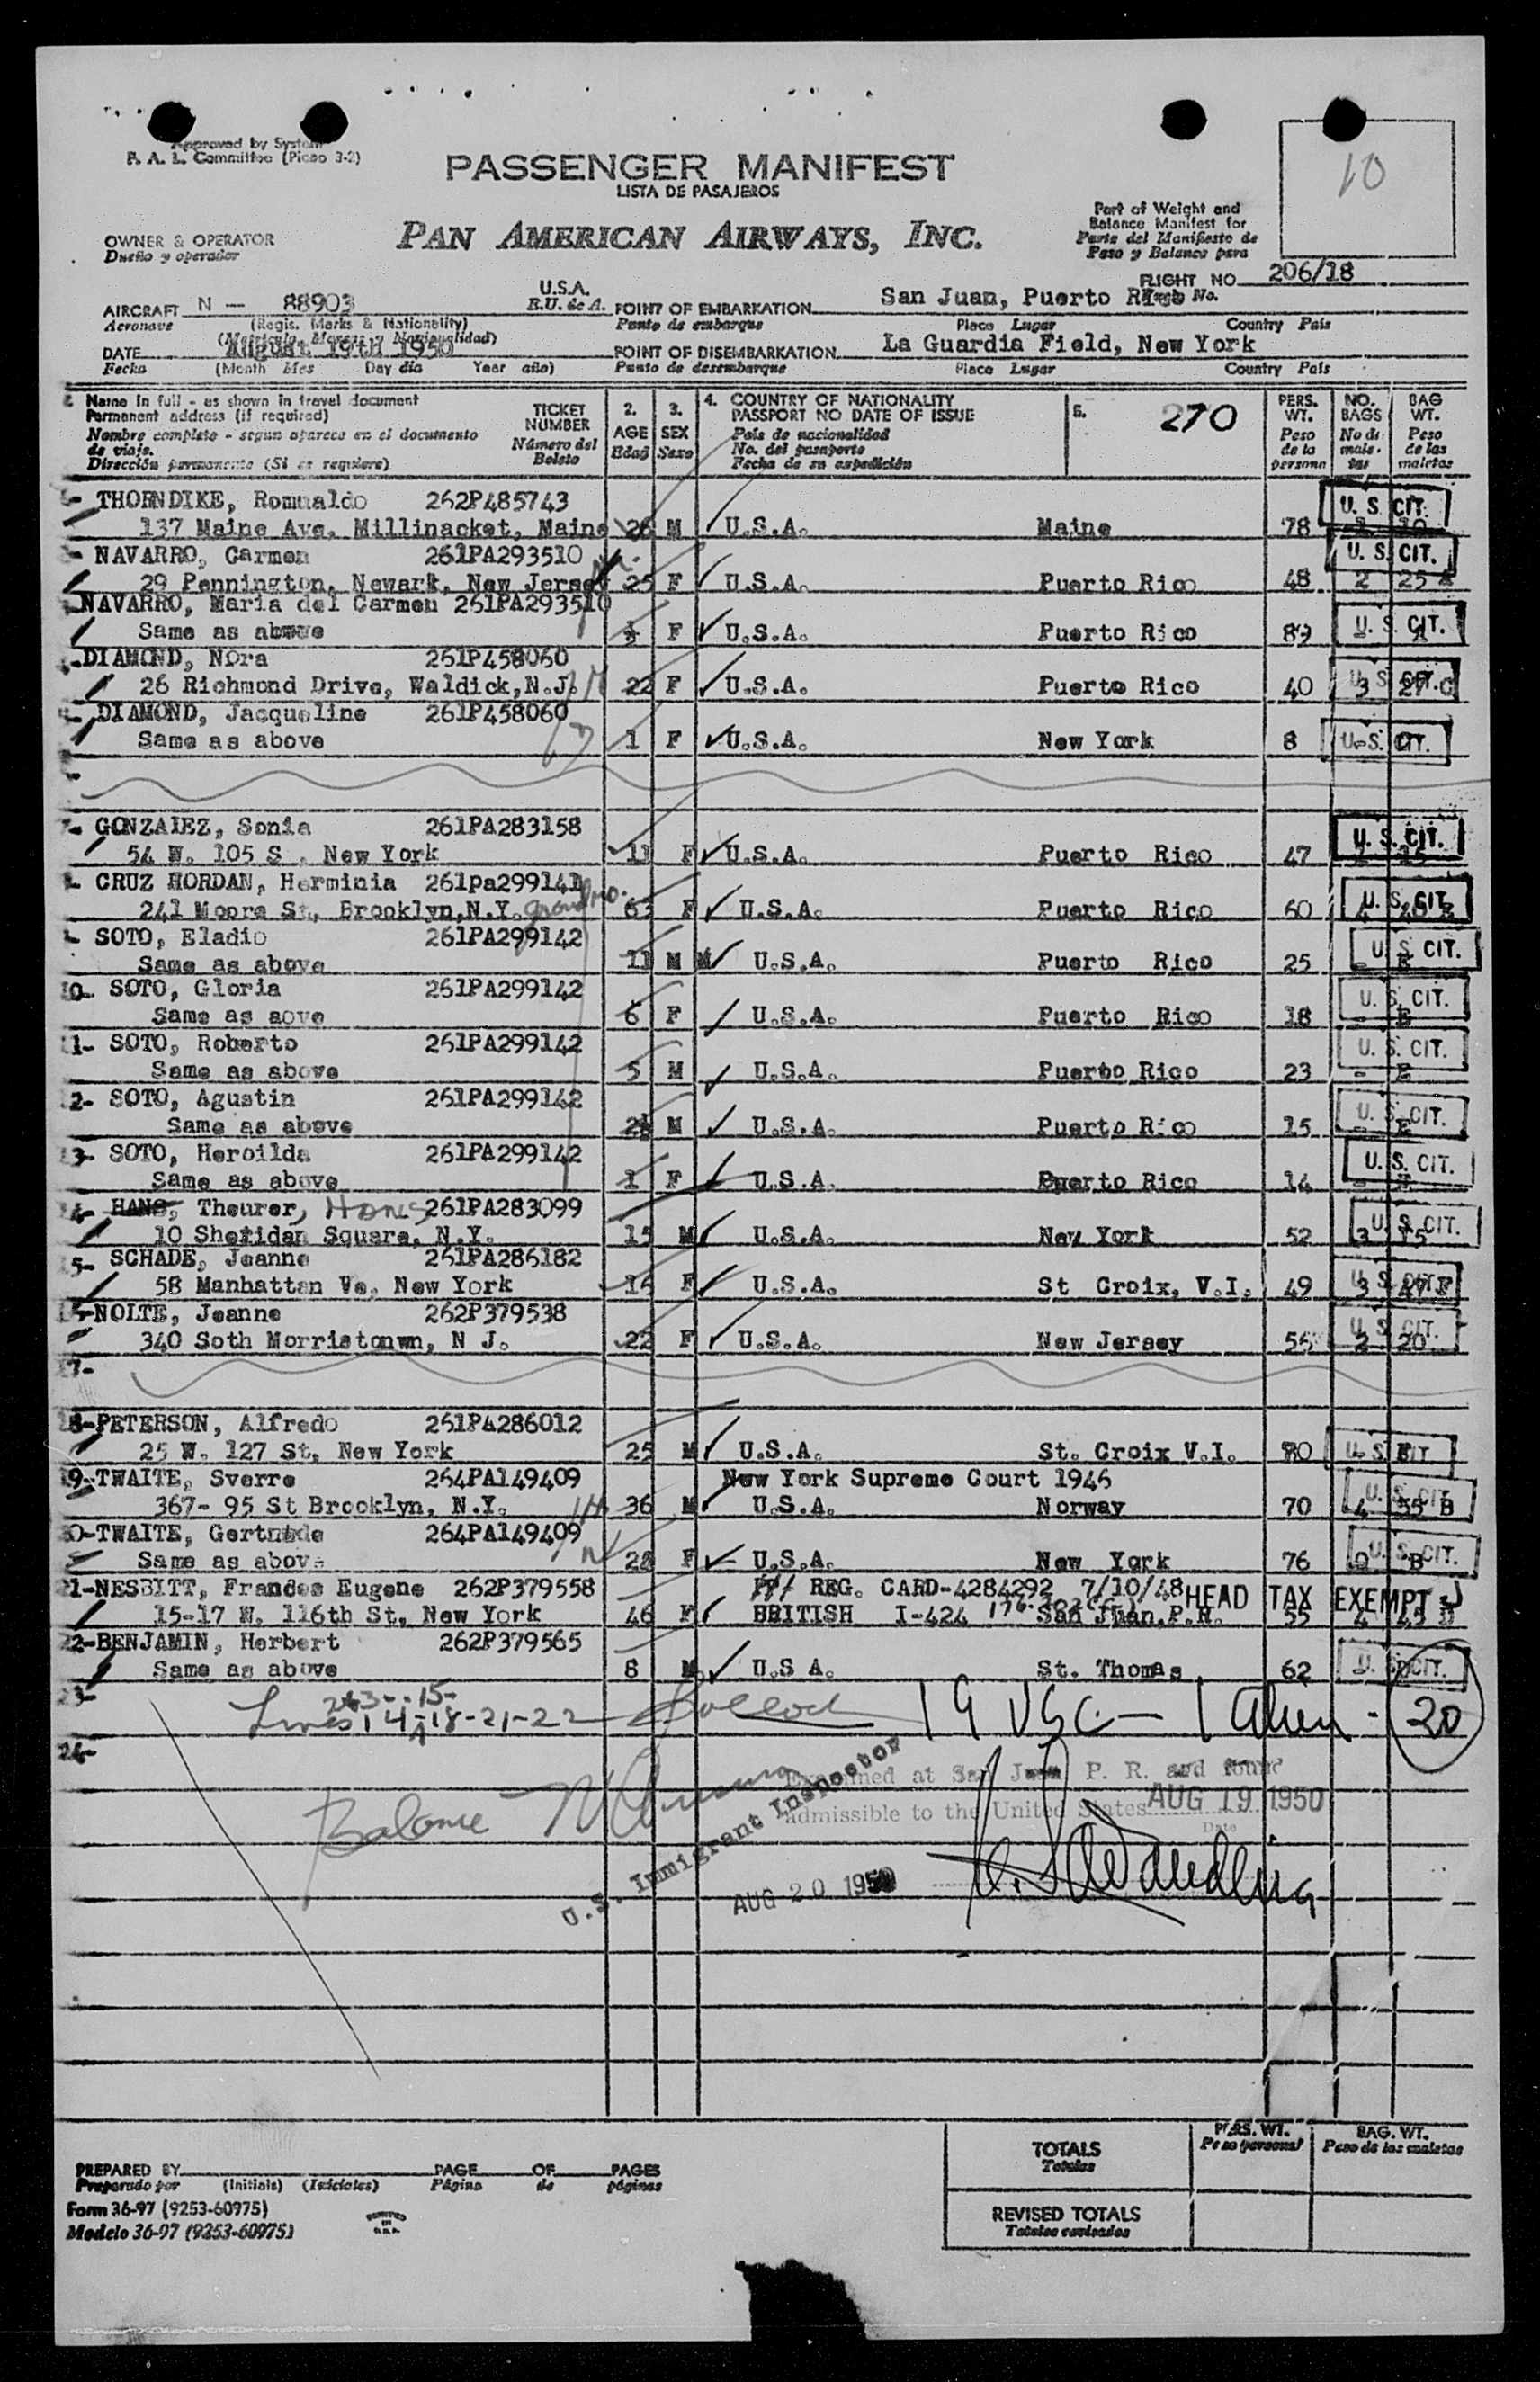 Approved by System
F. A. L. Committee (Picao 3-2)
10
PASSENGER MANIFEST
LISTA DE PASAJEROS
PAN AMERICAN AIRWAYS, INC.
Part of Weight and
Balance Manifest for
Parte del Manifiesto de
Peso y Balance para
OWNER & OPERATOR
Dueño y operador
FLIGHT NO. 206/18
AIRCRAFT N - 88903 U.S.A. POINT OF EMBARKATION San Juan, Puerto Rico
Aeronave (Regis. Marks & Nationality) E.U. de A. Punto de embarque Place Lugar Country País
DATE August 19th 1950 POINT OF DISEMBARKATION La Guardia Field, New York
Fecha (Month Mes Day día Year año) Punto de desembarque Place Lugar Country País
Name in full - as shown in travel document
Permanent address (if required)
Nombre completo - segun aparece en el documento
de viaje.
Dirección permanente (Si es requiere)
TICKET
NUMBER
Número del
Boleto
2.
AGE
Edad
3.
SEX
Sexo
4. COUNTRY OF NATIONALITY
PASSPORT NO DATE OF ISSUE
País de nacionalidad
No. del pasaporte
Fecha de su expedición
5. 270
PERS.
WT.
Peso
de la
persona
NO.
BAGS
No de
male-
tas
BAG
WT.
Peso
de las
maletas
THORNDIKE, Romualdo 262P485743 U.S. CIT.
137 Maine Ave. Millinacket, Maine 26 M U.S.A. Maine 78 1 10
NAVARRO, Carmen 261PA293510 U.S. CIT.
29 Pennington, Newark, New Jersey 25 F U.S.A. Puerto Rico 48 2 25 A
NAVARRO, Maria del Carmen 261PA293510
Same as above F U.S.A. Puerto Rico U.S. CIT.
DIAMOND, Nora 261P458060
26 Richmond Drive, Waldick, N.J. 22 F U.S.A. Puerto Rico 40 3 27 C U.S. CIT.
DIAMOND, Jacqueline 261P458060
Same as above 1 F U.S.A. New York 8 U.S. CIT.
7- GONZALEZ, Sonia 261PA283158
54 W. 105 S . New York 11 F U.S.A. Puerto Rico 47 U.S. CIT.
CRUZ HORDAN, Herminia 261pa299141
241 Moore St, Brooklyn,N.Y. grandmo. 63 F U.S.A. Puerto Rico 60 4 U.S. CIT.
SOTO, Eladio 261PA299142
Same as above 11 M M U.S.A. Puerto Rico 25 - E U.S. CIT.
10- SOTO, Gloria 261PA299142
Same as aove 6 F U.S.A. Puerto Rico 18 - E U.S. CIT.
11- SOTO, Roberto 261PA299142
Same as above 5 M U.S.A. Puerto Rico 23 - E U.S. CIT.
12- SOTO, Agustin 261PA299142
Same as above M U.S.A. Puerto Rico 15 - E U.S. CIT.
13- SOTO, Heroilda 261PA299142
Same as above 1 F U.S.A. Puerto Rico 14 - U.S. CIT.
14- HANS, Theurer, Hans 261PA283099
10 Sheridan Square, N.Y. 15 M U.S.A. New York 52 3 15 U.S. CIT.
15- SCHADE, Jeanne 261PA286182
58 Manhattan Ve. New York 16 F U.S.A. St Croix, V.I. 49 3 47 F U.S. CIT.
16-NOLTE, Jeanne 262P379538
340 Soth Morristonwn, N J. 22 F U.S.A. New Jersey 56 2 20 U.S. CIT.
17-
18-PETERSON, Alfredo 261PA286012
25 W. 127 St, New York 25 M U.S.A. St. Croix V.I. U.S. CIT.
19-TWAITE, Sverre 264PA149409 New York Supreme Court 1946
367- 95 St Brooklyn, N.Y. 36 M U.S.A. Norway 70 4 55 B U.S. CIT.
20-TWAITE, Gertrude 264PA149409
Same as above 28 F U.S.A. New York 76 B U.S. CIT.
21-NESBITT, Frandes Eugene 262P379558 REG. CARD-4284292 7/10/48 HEAD TAX EXEMPT
15-17 W. 116th St, New York 46 F BRITISH I-424 San Juan,P.R. 55 4 45 D
22-BENJAMIN, Herbert 262P379565
Same as above 8 M U.S A. St. Thomas 62 - D U.S. CIT.
23- 243--15-
Lines 1 4-18-21-22 19 USC - 1 alien - 20
24-
Examined at San Juan P. R. and found
admissible to the United States AUG 19 1950
Date
Balance
U.S. Immigrant Inspector
AUG 20 1950
TOTALS
Totales
PERS. WT.
Peso personal
BAG. WT.
Peso de las maletas
PREPARED BY PAGE OF PAGES
Preparado por (Initials) (Iniciales) Página de páginas
REVISED TOTALS
Totales revisados
Form 36-97 (9253-60975)
Modelo 36-97 (9253-60975)
PRINTED
IN
U.S.A.